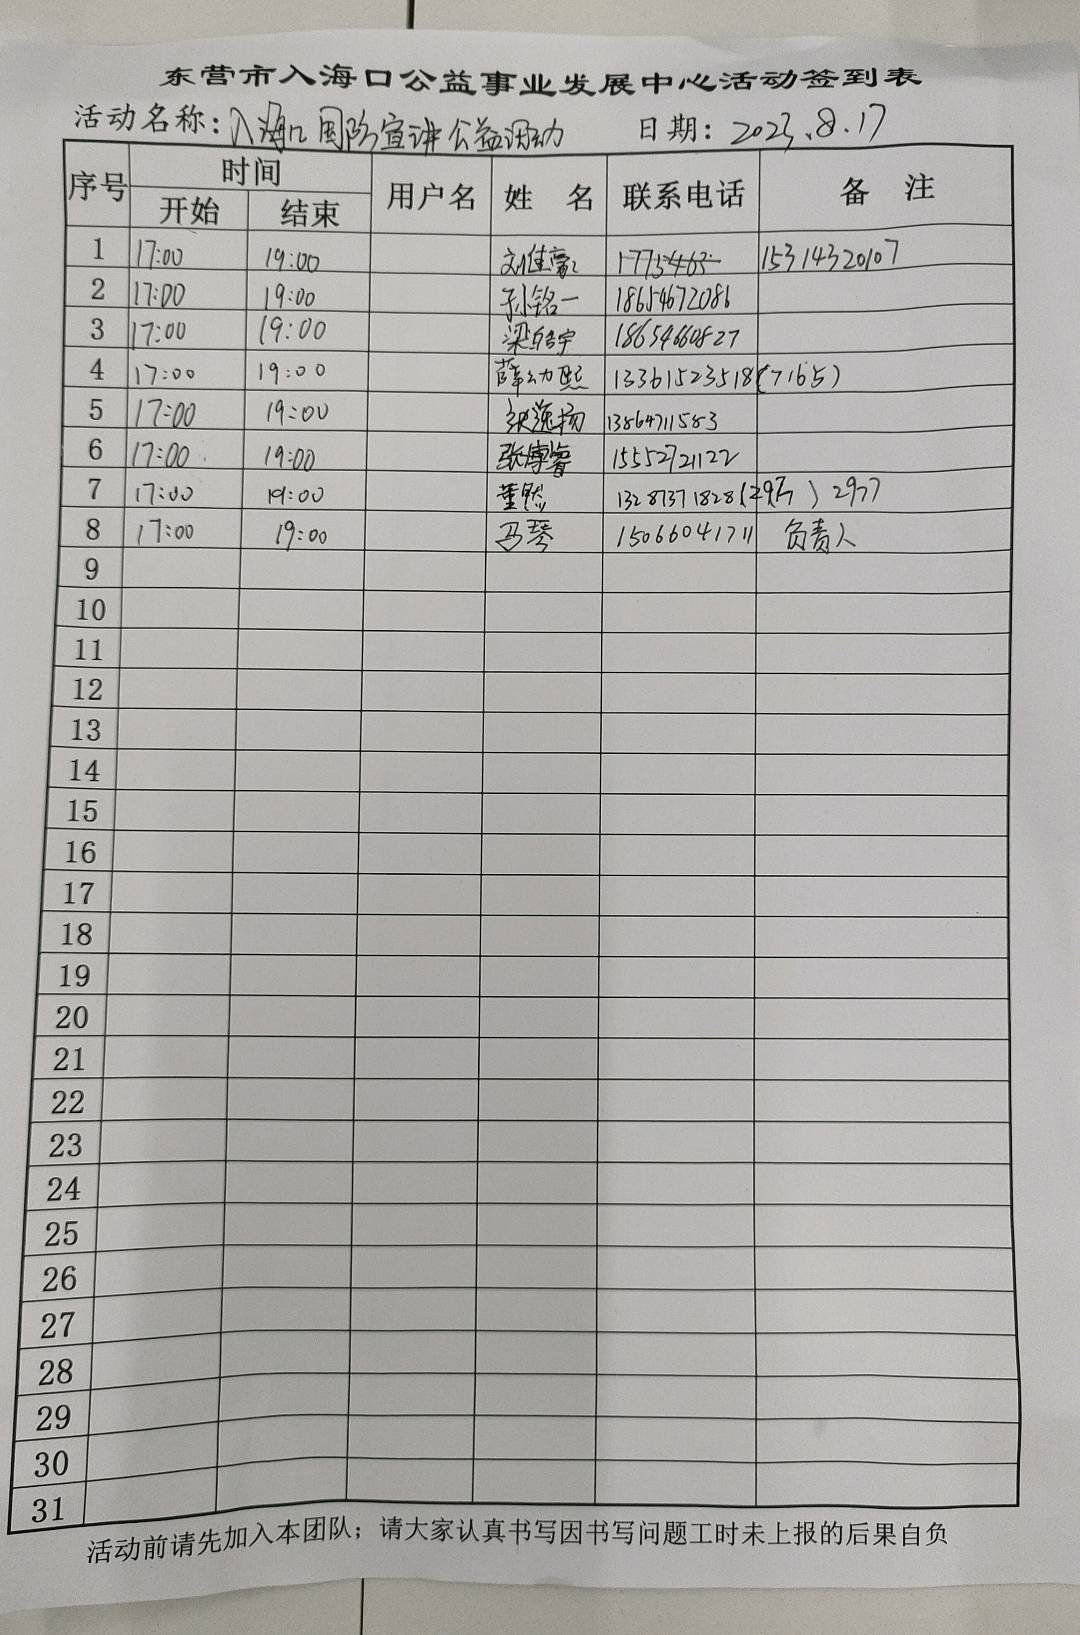 东营市入海口公益事业发展中心活动签到表
活动名称：入海口国防宣讲公益活动 日期：2023.8.17
序号 时间 用户名 姓 名 联系电话 备 注
开始 结束
1 17:00 19:00 刘佳豪 1775463 15314320107
2 17:00 19:00 孙铭一 18654672086
3 17:00 19:00 梁皓宇 18654660827
4 17:00 19:00 薛幼熙 13361523518(7165)
5 17:00 19:00 张逸扬 13864711583
6 17:00 19:00 张博睿 15552721122
7 17:00 19:00 董然 13287371828 2977
8 17:00 19:00 冯琴 15066041711 负责人
9
10
11
12
13
14
15
16
17
18
19
20
21
22
23
24
25
26
27
28
29
30
31
活动前请先加入本团队；请大家认真书写因书写问题工时未上报的后果自负